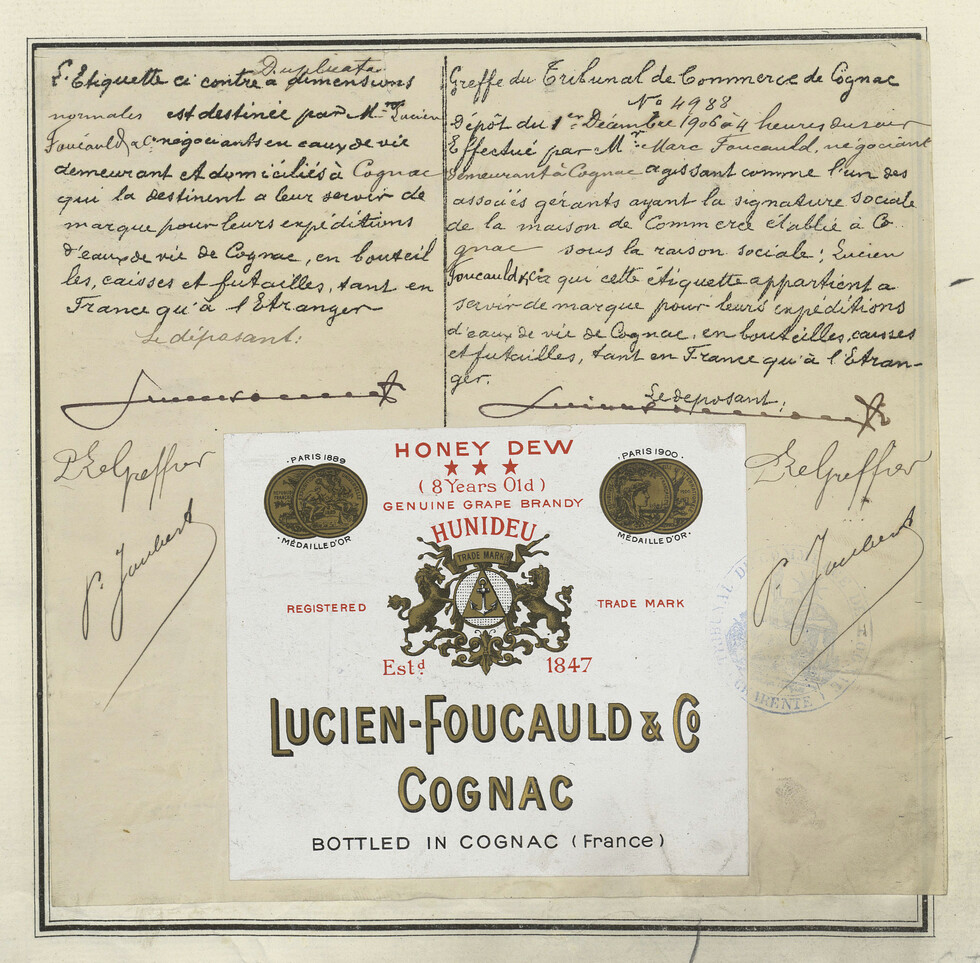 Duplicata
L'Etiquette ci contre a dimensions
normales est destinée par Mrs Lucien
Foucauld & Ce négociants en eaux de vie
demeurant et domiciliés à Cognac
qui la destinent a leur servir de
marque pour leurs expéditions
d'eaux de vie de Cognac, en bouteil
les, caisses et futailles, tant en
France qu'à l'Etranger
Le déposant:
P. Le Greffier
P. Joubert
Greffe du Tribunal de Commerce de Cognac
No 4988
Dépôt du 1er Décembre 1906 à 4 heures du soir
Effectué par Mr Marc Foucauld, négociant
demeurant à Cognac agissant comme l'un des
associés gérants ayant la signature sociale
de la maison de Commerce établie à Co
gnac sous la raison sociale; Lucien
Foucauld & Cie qui cette étiquette appartient a
servir de marque pour leurs expéditions
d'eaux de vie de Cognac, en bouteilles, caisses
et futailles, tant en France qu'à l'Etran-
ger.
Le deposant;
P. Le Greffier
P. Joubert
HONEY DEW
(8 Years Old)
GENUINE GRAPE BRANDY
PARIS 1889
MÉDAILLE D'OR
PARIS 1900
MÉDAILLE D'OR
HUNIDEU
TRADE MARK
REGISTERED TRADE MARK
Estd 1847
LUCIEN-FOUCAULD & Co
COGNAC
BOTTLED IN COGNAC (France)
TRIBUNAL DE
CHARENTE